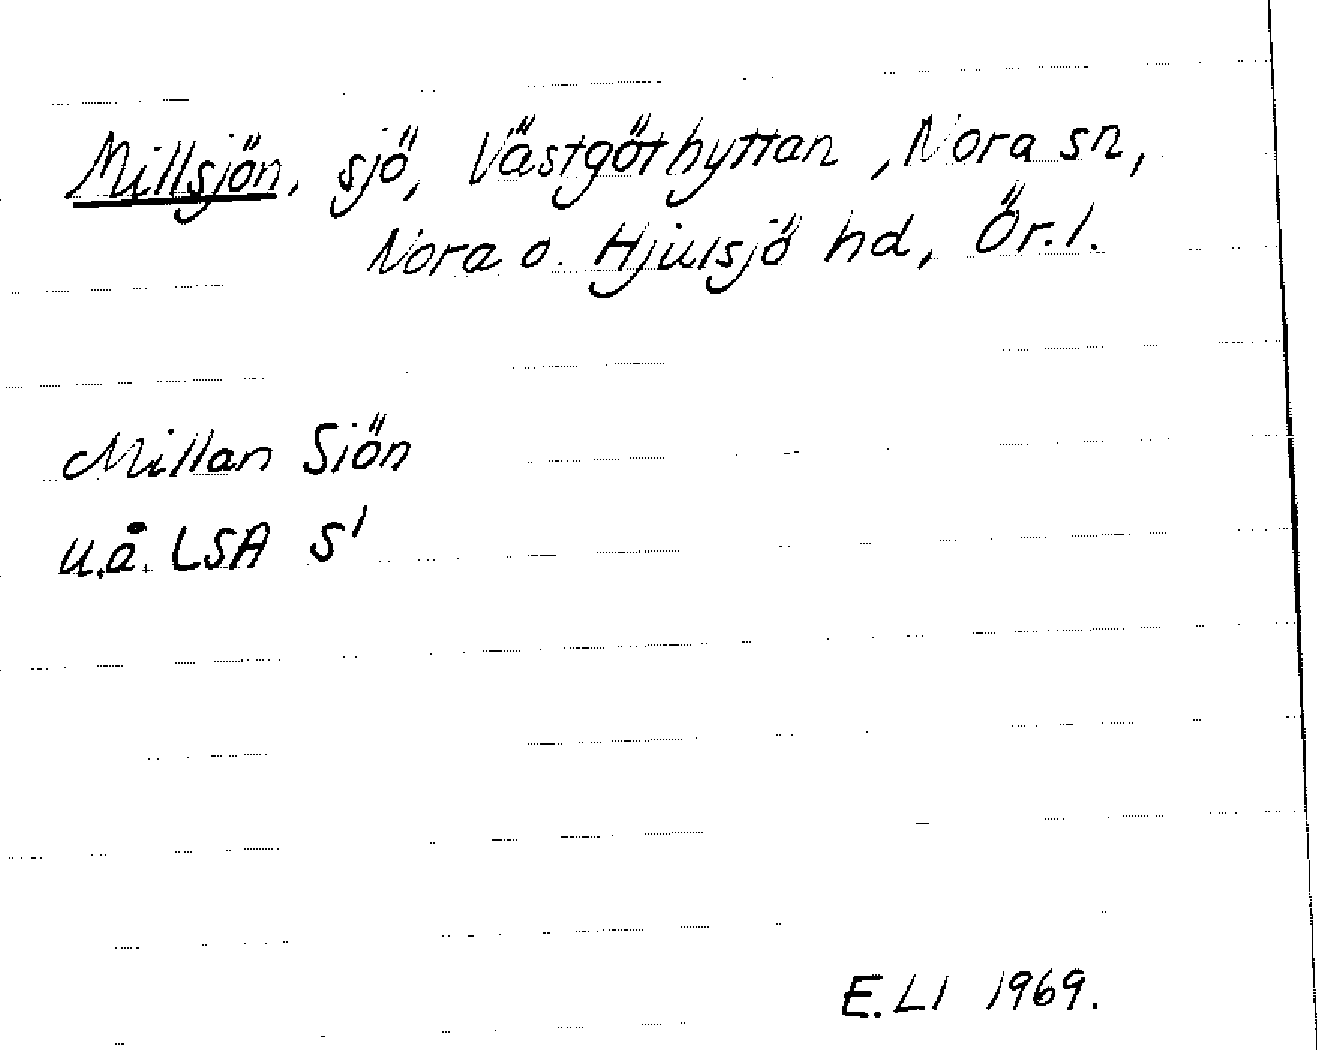 Millsjön, sjö, Västgöthyttan, Nora sn,
Nora o. Hjulsjö hd, Ör. l.
Millan Siön
u.å. LSA S1
E.LI 1969.